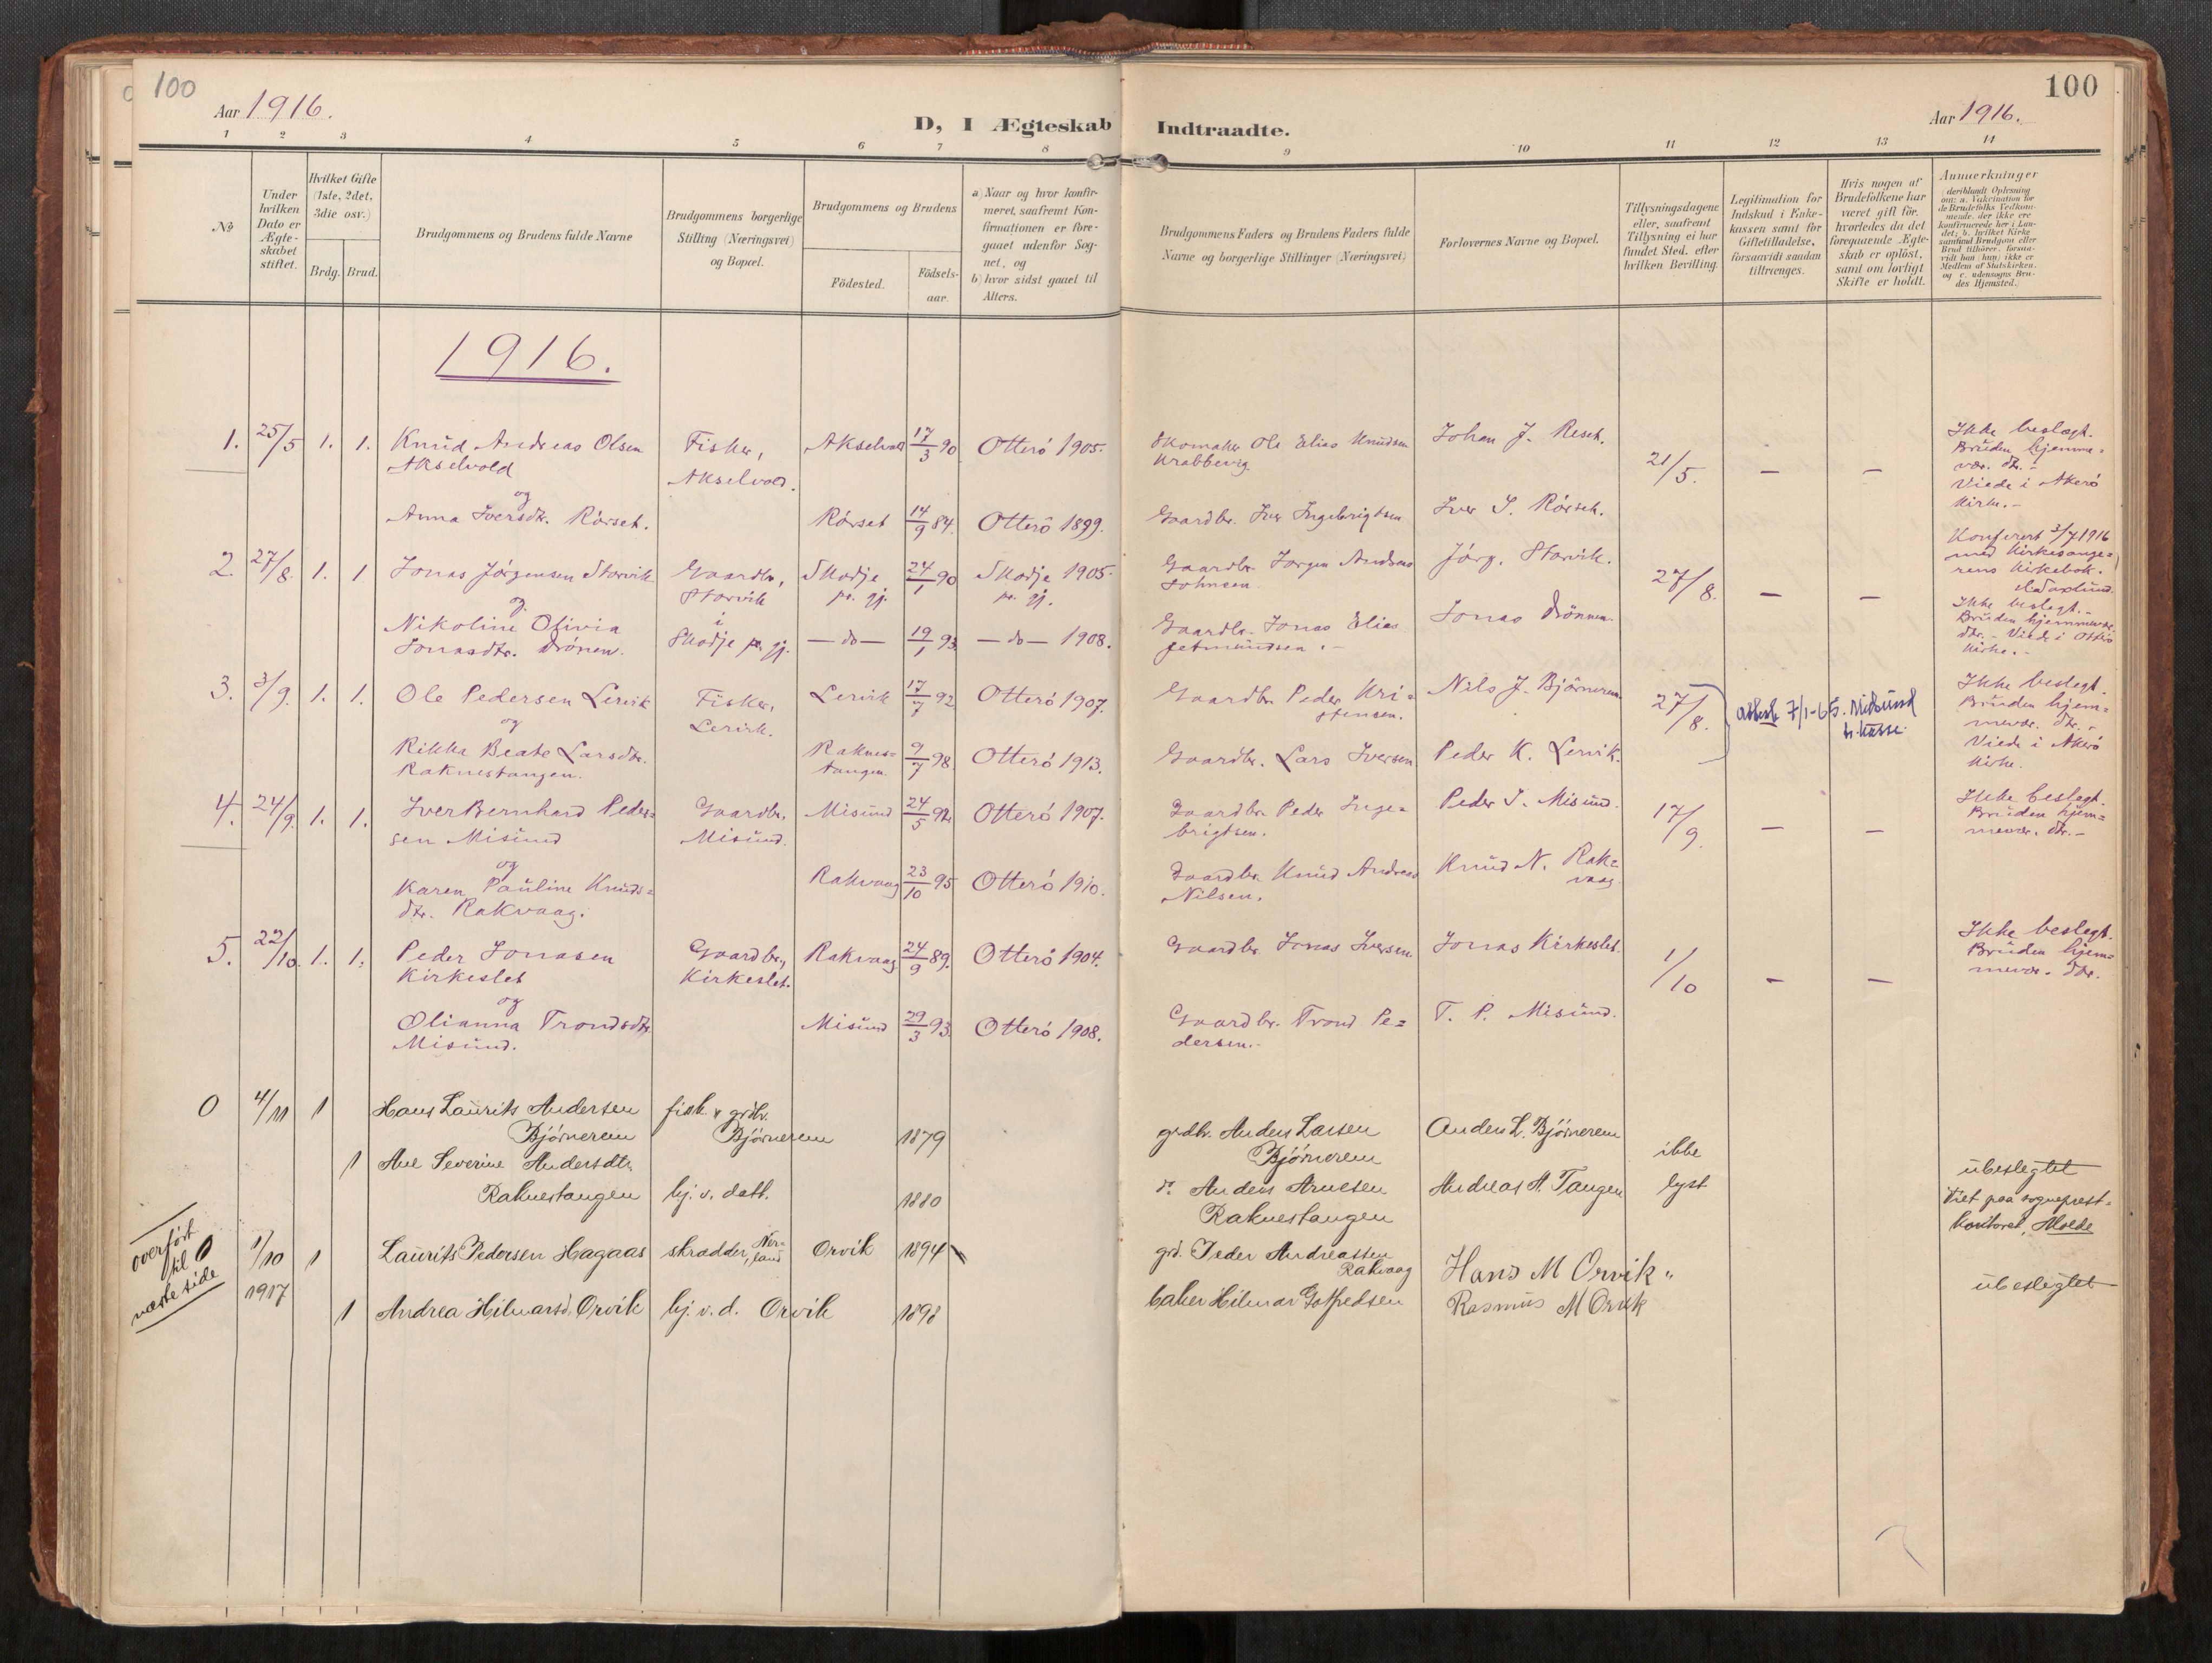 100
Aar 1916.
D, I Ægteskab Indtraadte.
100
Aar 1916.
1 2 3 4 5 6 7 8 9 10 11 12 13 14
No
Under hvilken Dato er Ægte-skabet stiftet.
Hvilket Gifte (1ste, 2det, 3die osv.)
Brdg. Brud.
Brudgommens og Brudens fulde Navne
Brudgommens borgerlige Stilling (Næringsvei) og Bopæl.
Brudgommens og Brudens
Fødested.
Fødsels-aar.
a) Naar og hvor konfir-meret, saafremt Kon-firmationen er fore-gaaet udenfor Sog-net, og
b) hvor sidst gaaet til Alters.
Brudgommens Faders og Brudens Faders fulde Navne og borgerlige Stillinger (Næringsvei)
Forlovernes Navne og Bopæl.
Tillysningsdagene eller, saafremt Tillysning ei har fundet Sted, efter hvilken Bevilling.
Legitimation for Indskud i Enke-kassen samt for Giftetilladelse, forsaavidt saadan tiltrænges.
Hvis nogen af Brudefolkene har været gift før, hvorledes da det foregaaende Ægte-skab er opløst, samt om lovligt Skifte er holdt.
Anmærkninger
(deriblandt Oplysning om: a. Vakcination for de Brudefolks Vedkom-mende, der ikke ere konfirmerede her i Lan-det; b. hvilket Kirke-samfund Brudgom eller Brud tilhører, forsaa-vidt han (hun) ikke er Medlem af Statskirken, og c. udensogns Bru-des Hjemsted.)
1916.
1. 25/5 1. 1. Knud Andreas Olsen Akselvold
Fisker, Akselvold.
Akselvold 17/3 90 Otterö 1905.
Skomaker Ole Elias Knudsen Krabbevig
Johan J. Reset.
21/5. — —
Ikke beslægt. Bruden hjemme=vær. dtr.- Viede i Akerö Kirke.-
og
Anna Iversdtr. Rörset.
Rörset 14/9 84. Otterö 1899.
Gaardbr. Iver Ingebrigtsen
Iver I. Rörset.
2. 27/8. 1. 1 Jonas Jörgensen Storvik
Gaardbr, Storvik i Skodje pr. gj.
Skodje pr. gj. 24/1 90 Skodje 1905. pr. gj.
Gaardbr. Jörgen Andreas Johnsen
Jörg. Storvik.
27/8. — —
Konferert 3/7 1916 med Kirkesange=rens Kirkebok.
Ikke beslegt.- Bruden hjemmevær. dtr. - Viede i Otterö Kirke.-
og
Nikoline Olivia Jonasdtr. Drönen.
—do— 19/1 93. —do— 1908.
Gaardbr. Jonas Elias Jetmundsen.-
Jonas Drönnen
3. 3/9. 1. 1. Ole Pedersen Lervik
Fisker, Lervik.
Lervik 17/7 92 Otterö 1907.
Gaardbr. Peder Kri=stensen.
Nils J. Björnerem
27/8.
attest 7/1-65. Midsund tr.kasse.
Ikke beslegt. Bruden hjem=mevær. dtr.- Viede i Akerö Kirke.
og
Rikka Beate Larsdtr. Raknestangen.
Raknes=tangen. 9/7 98. Otterö 1913.
Gaardbr. Lars Iversen
Peder K. Lervik.
4. 24/9. 1. 1. Iver Bernhard Peder=sen Misund
Gaardbr, Misund.
Misund 24/5 92. Otterö 1907.
Gaardbr. Peder Inge=brigtsen.
Peder I. Misund.
17/9. — —
Ikke beslegt. Bruden hjem=mevær. dtr.-
og
Karen Pauline Knuds=dtr. Rakvaag.
Rakvaag 23/10 95 Otterö 1910.
Gaardbr. Knud Andreas Nilsen.
Knud N. Rak=vaag
5. 22/10. 1. 1. Peder Jonasen Kirkeslet
Gaardbr., Kirkeslet.
Rakvaag 24/9 89. Otterö 1904.
Gaardbr. Jonas Iversen
Jonas Kirkeslet.
1/10 — —
Ikke beslegt. Bruden hjem=mevær. dtr.
og
Olianna Trondsdtr. Misund.
Misund 29/3 93. Otterö 1908.
Gaardbr. Trond Pe=dersen.-
T. P. Misund.
0 4/11 1 Hans Laurits Andersen Björnerem
fisk. & grdbr. Björnerem
1879
grdbr. Anders Larsen Björnerem
Anders L. Björnerem
ikke lyst
1 Ane Severine Andersdtr. Raknestangen
hj. v. datt.
1880
do Anders Arnesen Raknestangen
Andreas A. Tangen
ubeslegtet
Viet paa sogneprest-kontoret, Molde
overført til 0 næste side
1/10 1917 1 Laurits Pedersen Hagaas
skrædder, Nerland
Orvik 1894
grd. Peder Andreassen Rakvaag
Hans M Orvik
ubeslegtet
1 Andrea Hilmarsd. Orvik
hj. v. d. Orvik 1898
baker Hilmar Gotfredsen
Rasmus M Orvik